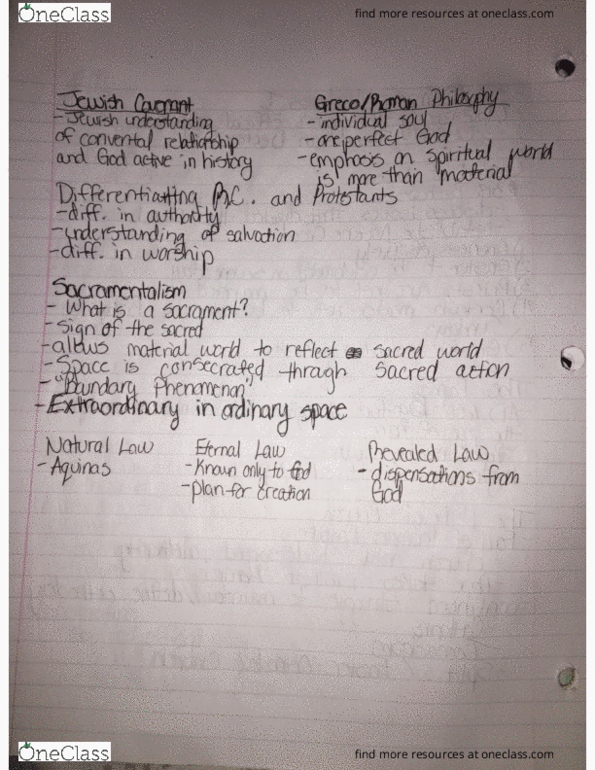 OneClass
find more resources at oneclass.com
Jewish Covenant
- Jewish understanding
of convental relationship
and God active in history
Greco/Roman Philosophy
- individual soul
- one perfect God
- emphasis on spiritual world
is more than material
Differentiating R.C. and Protestants
- diff. in authority
- understanding of salvation
- diff. in worship
Sacramentalism
- What is a sacrament?
- sign of the sacred
- allows material world to reflect sacred world
- Space is consecrated through sacred action
- "Boundary Phenomenon"
- Extraordinary in ordinary space
Natural Law
- Aquinas
Eternal Law
- Known only to God
- plan for creation
Revealed Law
- dispensations from
God
OneClass
find more resources at oneclass.com